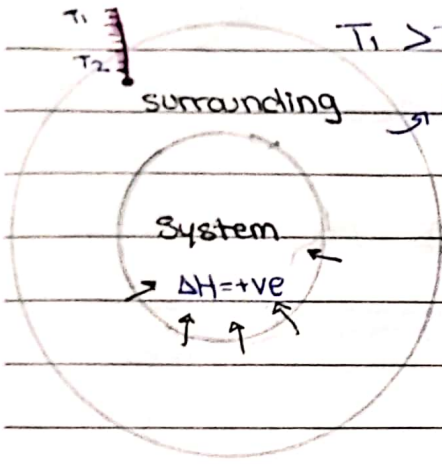 T₁
T₁ >
T₂
surrounding
System
ΔH=+ve